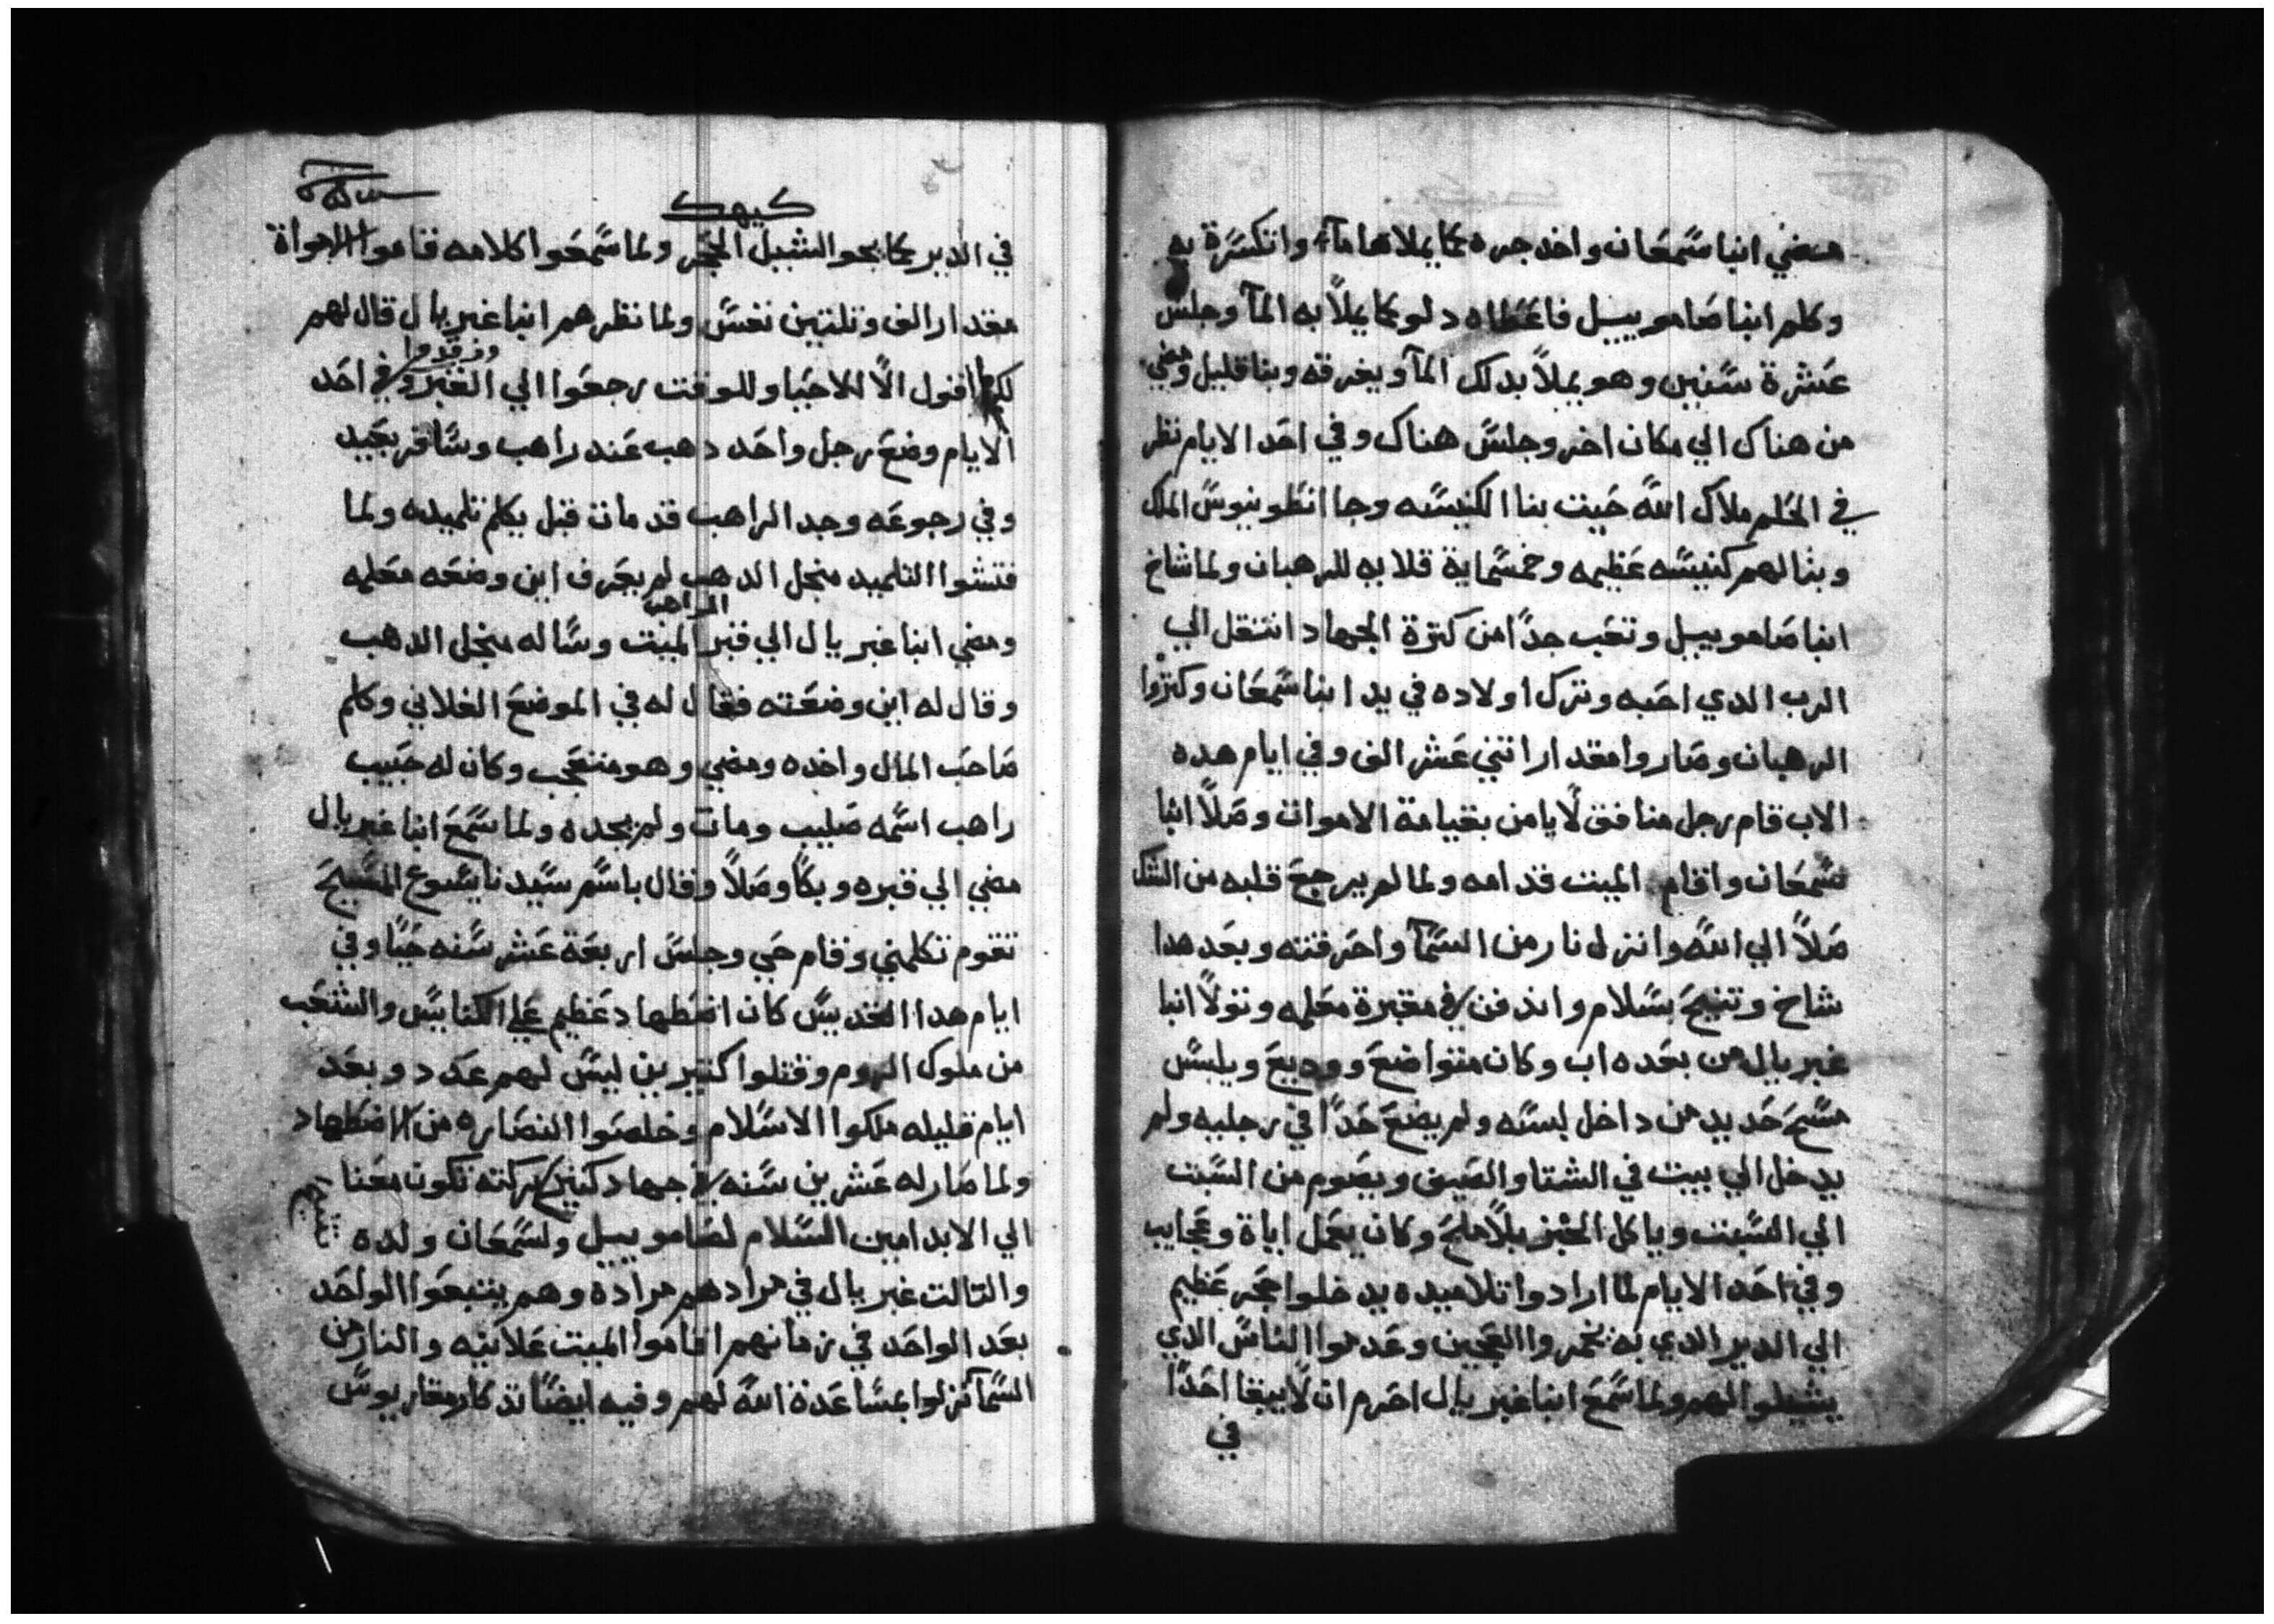 فمضي انبا سمعان واخد جره كما يملاها مآء وانكسرة به
وكلم انبا صاموييل فاعطاه دلو كما يملاً به المآ وجلس
عشرة سنين وهو يملاً بدلك المآ ويغرقه وبنا قليل ومضي
من هناك الي مكان اخر وجلس هناك وفي احد الايام نظر
في الحلم ملاك الله حيت بنا الكنيسه وجا انطونيوس الملك
وبنا لهم كنيسه عظيمه وخمسماية قلايه للرهبان ولما شاخ
انبا صاموييل وتعب جداً من كترة الجهاد انتقل الي
الرب الدي احبه وترك اولاده في يد انبا سمعان وكتروا
الرهبان وصاروا مقدار اتني عشر الف وفي ايام هده
الاب قام رجل منافق لا يامن بقيامة الاموات وصلاً انبا
سمعان واقام الميت قدامه ولما لم يرجع قلبه من الشك
صلاً الي الله وانزل نار من السمآ واحرقته وبعد هدا
شاخ وتنيح بسلام واندفن في مقبرة معلمه وتولاً انبا
غبريال من بعده اب وكان متواضع ووديع ويلبس
مسح حديد من داخل لبسه ولم يضع حداً في رجليه ولم
يدخل الي بيت في الشتا والصيف ويصوم من السبت
الي السبت وياكل الخبز بلا ملح وكان يعمل اياة وعجايب
وفي احد الايام لما ارادوا تلاميده يدخلوا حجر عظيم
الي الدير الدي به يخمروا العجين وعدموا الناس الدي
يشيلوا لهم ولما سمع انبا غبريال احرم ان لا يبقا احداً
في
كيهك
في الدير كما يجوا لشيل الحجر ولما سمعوا كلامه قاموا الامواة
مقدار الف وتلتين نفس ولما نظرهم انبا غبريال قال لهم
لكم اقول الا للاحيا وللوقت رجعوا الي القبر ورقدوا وفي احد
الايام وضع رجل واحد دهب عند راهب وسافر بعيد
وفي رجوعه وجد الراهب قد مات قبل يكلم تلميده ولما
فتشوا التلميد منجل الدهب لم يعرف اين وضعه معلمه
ومضي انبا غبريال الي قبر الراهب الميت وساله منجل الدهب
وقال له اين وضعته فقال له في الموضع الفلاني وكلم
صاحب المال واخده ومضي وهو متعجب وكان له حبيب
راهب اسمه صليب ومات ولم يجده ولما سمع انبا غبريال
مضي الي قبره وبكاً وصلاً وقال باسم سيدنا يسوع المسيح
تقوم تكلمني وقام حي وجلس اربعة عشر سنه حياً وفي
ايام هدا القديس كان اضطهاد عظيم علي الكنايس والشعب
من ملوك الروم وقتلوا كتيرين ليس لهم عدد وبعد
ايام قليله ملكوا الاسلام وخلصوا النصاره من الاضطهاد
ولما صار له عشرين سنه في جهاد كتير بركته تكون معنا
الي الابد امين السلام لصاموييل ولسمعان ولده
والتالت غبريال في مرادهم مراده وهم يتبعوا الواحد
بعد الواحد في زمانهم اقاموا الميت علانيه والنار من
السمآ نزلوا بمساعدة الله لهم وفيه ايضاً تدكار مقاريوس